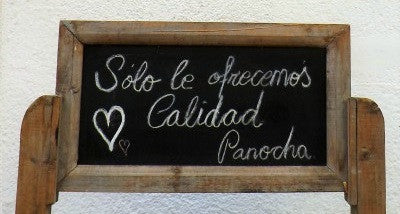 Sólo le ofrecemos
Calidad
Panocha